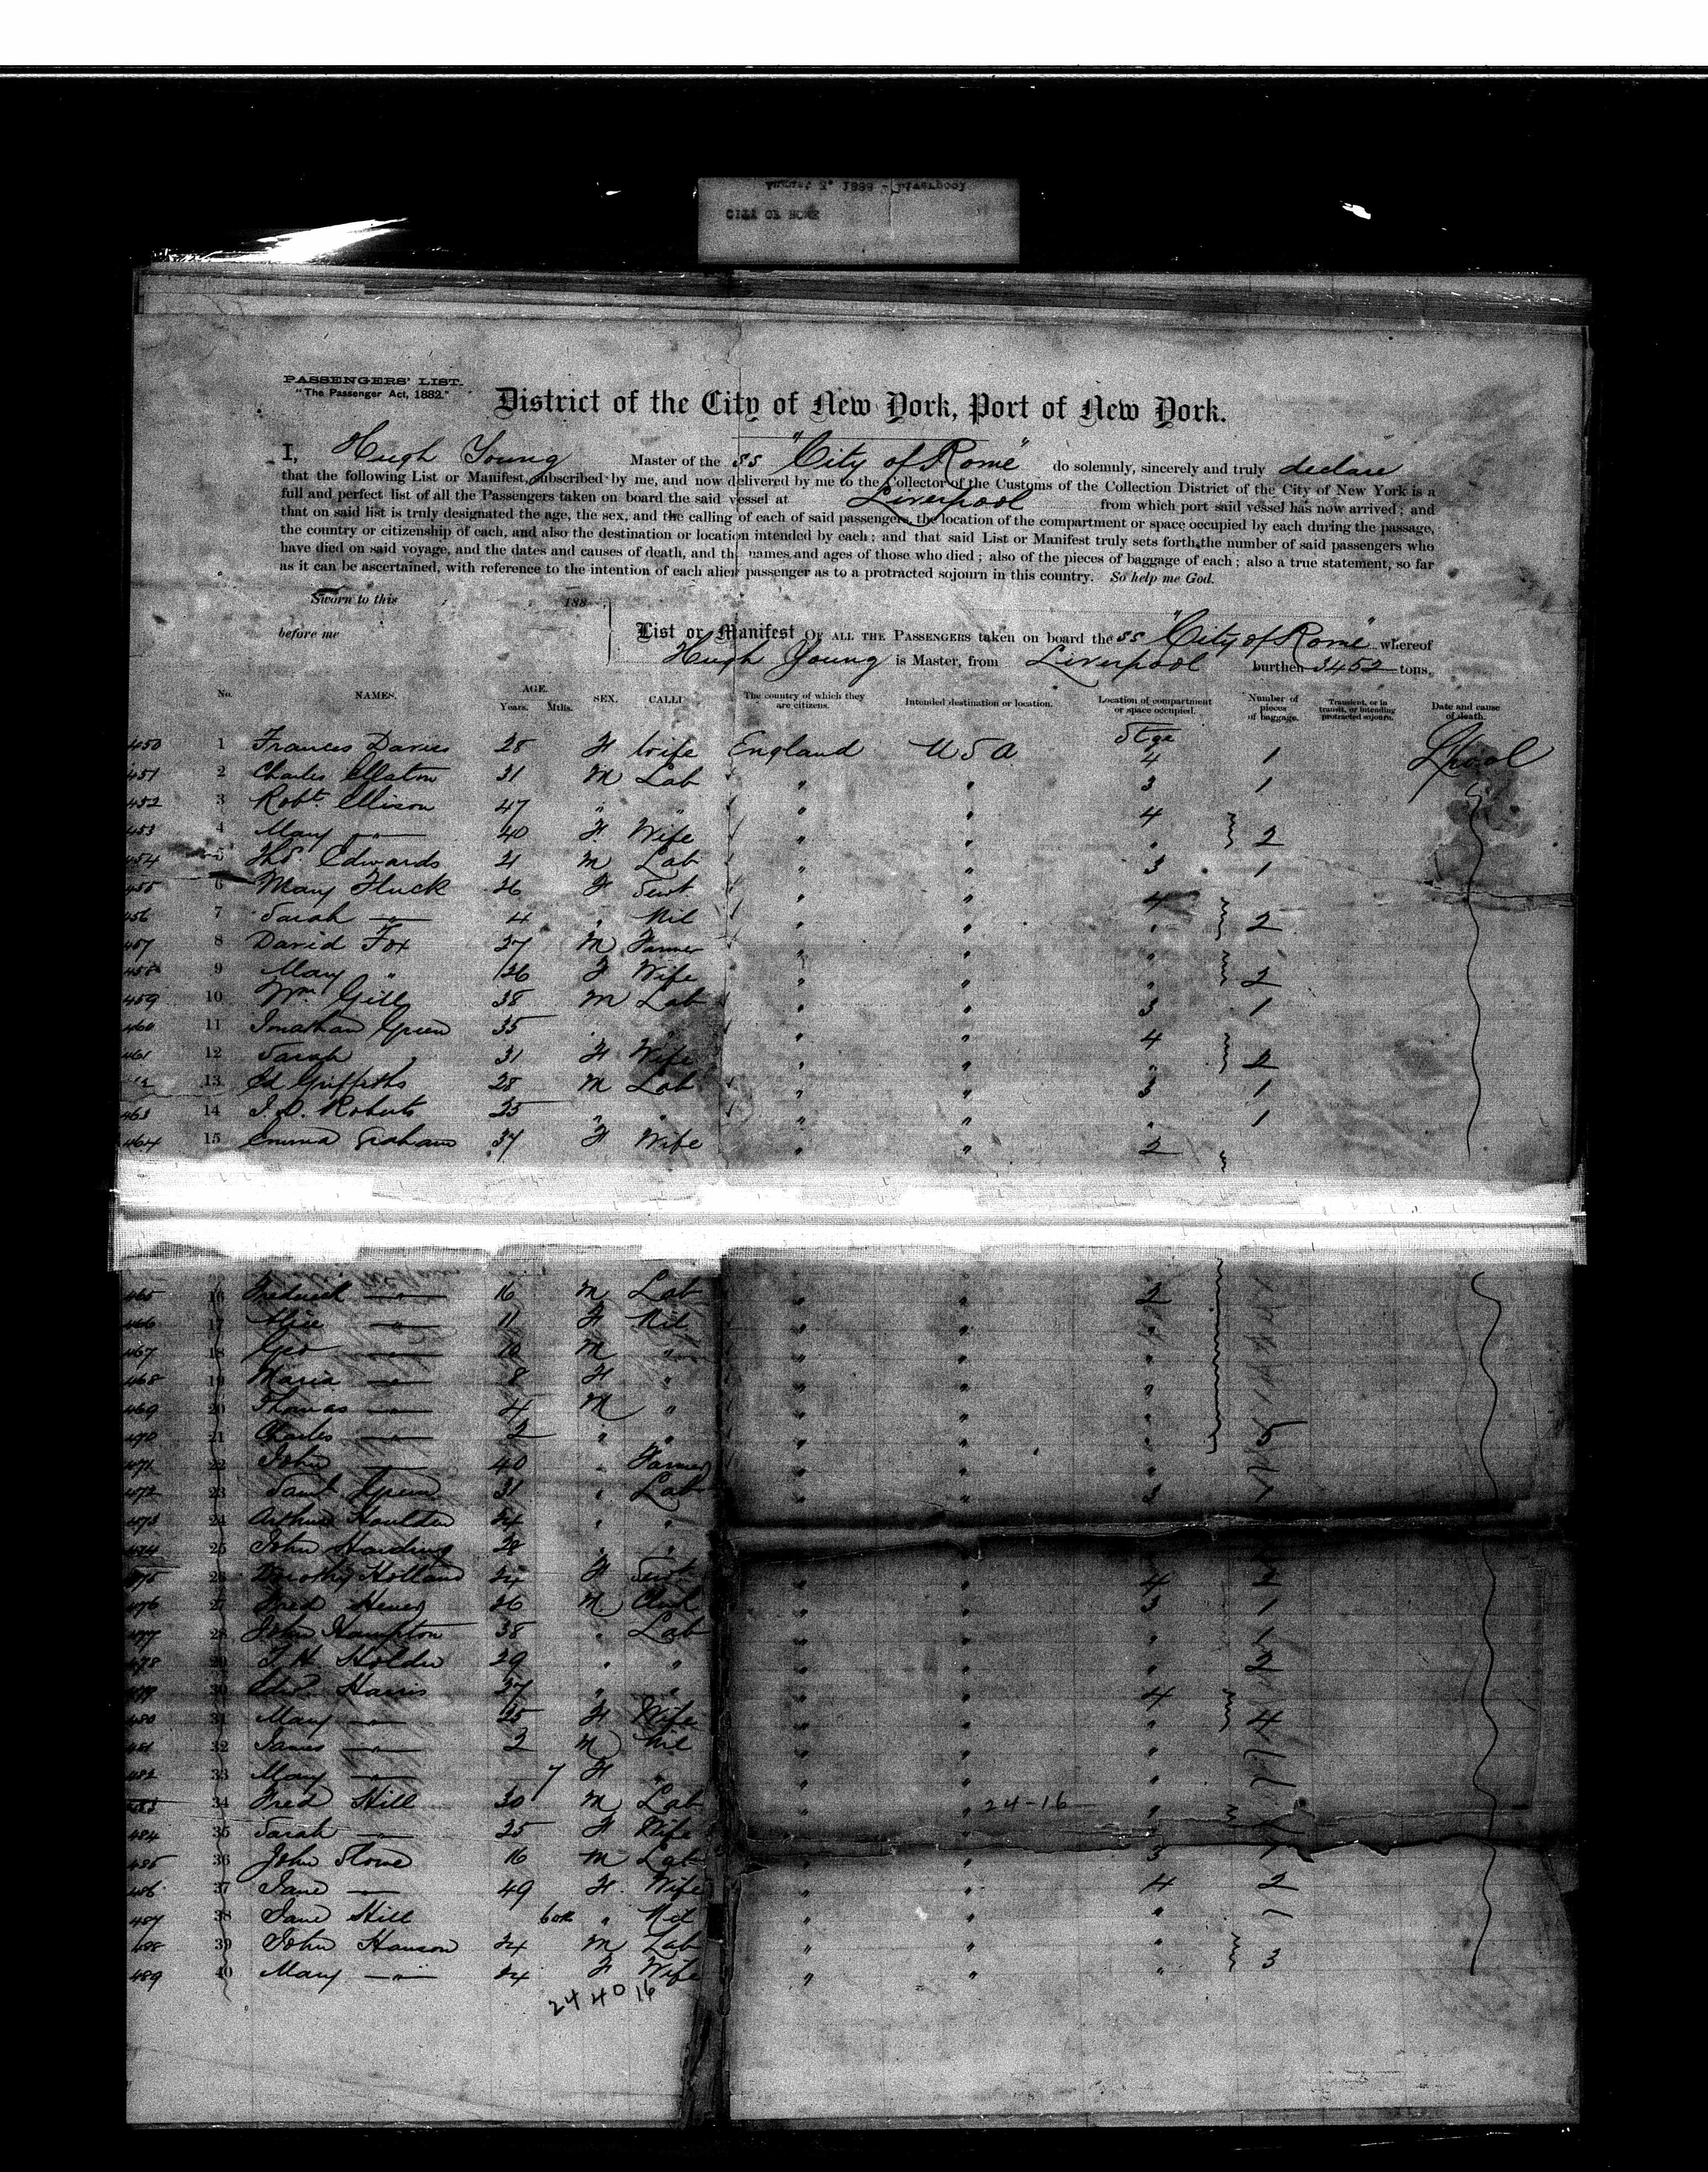 CITY OF ROME
PASSENGERS' LIST.
"The Passenger Act, 1882."
District of the City of New York, Port of New York.
I, Hugh Young Master of the SS "City of Rome" do solemnly, sincerely and truly declare
that the following List or Manifest, subscribed by me, and now delivered by me to the Collector of the Customs of the Collection District of the City of New York is a
full and perfect list of all the Passengers taken on board the said vessel at Liverpool from which port said vessel has now arrived; and
that on said list is truly designated the age, the sex, and the calling of each of said passengers, the location of the compartment or space occupied by each during the passage,
the country or citizenship of each, and also the destination or location intended by each; and that said List or Manifest truly sets forth the number of said passengers who
have died on said voyage, and the dates and causes of death, and the names and ages of those who died; also of the pieces of baggage of each; also a true statement, so far
as it can be ascertained, with reference to the intention of each alien passenger as to a protracted sojourn in this country. So help me God.
Sworn to this 188
before me
List or Manifest OF ALL THE PASSENGERS taken on board the SS "City of Rome" whereof
Hugh Young is Master, from Liverpool burthen 3452 tons.
No. NAMES. AGE. Years. Mths. SEX. CALLI The country of which they are citizens. Intended destination or location. Location of compartment or space occupied. Number of pieces of baggage. Transient, or in transit, or intending protracted sojourn. Date and cause of death.
450 1 Frances Davies 28 F Wife England U S A Stge 4 1 Lpool
451 2 Charles 31 M Lab " " 3 1
452 3 Robt Ellison 47 " " " " 4
453 4 Mary —"— 40 F. Wife " " " 2
454 5 Thos. Edwards 21 M Lab " " 3 1
455 6 Mary Fluck 26 F Servt " " 4
456 7 Sarah —"— 4 " Nil " " " 2
457 8 David Fox 27 M Farmer " " "
458 9 Mary " 26 F Wife " " " 2
459 10 Wm. Gill 38 M Lab " " 3 1
460 11 Jonathan Green 35 " " " " 4
461 12 Sarah 31 F Wife " " " 2
13 Ed Griffiths 28 M Lab " " 3 1
463 14 Roberts 25 " " " " " 1
464 15 Emma Graham 37 F Wife " " 2
465 16 Frederick —"— 16 M Lab " " 2
466 17 Alice —"— 11 F Nil " " "
467 18 Geo —"— 10 M " " " "
468 19 Maria —"— 8 F " " " "
469 20 Thomas —"— 4 M " " " "
470 21 Charles —"— 2 " " " " " 5
471 22 John —"— 40 " Farmer " " "
472 23 Saml Green 31 " Lab " " 3
473 24 Arthur Houlden 24 " "
474 25 John Harding 28 " "
475 26 Dorothy Holland 24 F Servt " " 4
476 27 Fred 26 M Clerk " " 3 1
477 28 John Hampton 38 " Lab " " " 1
478 29 Holder 29 " " " " " 2
479 30 Edwd. Harris 27 " " " " 4
480 31 Mary —"— 25 F Wife " " " 4
481 32 James —"— 2 M Nil " " "
482 33 Mary —"— 7 F " " " "
483 34 Fred Hill 30 M Lab " " 24-16 "
484 35 Sarah —"— 25 F Wife
485 36 John Stone 16 M Lab " " 3
486 37 Jane —"— 49 F. Wife " " 4 2
487 38 Jane Hill " Nil " " "
488 39 John Hanson 24 M Lab " " "
489 40 Mary —"— 24 F Wife " " " 3
24 40 16